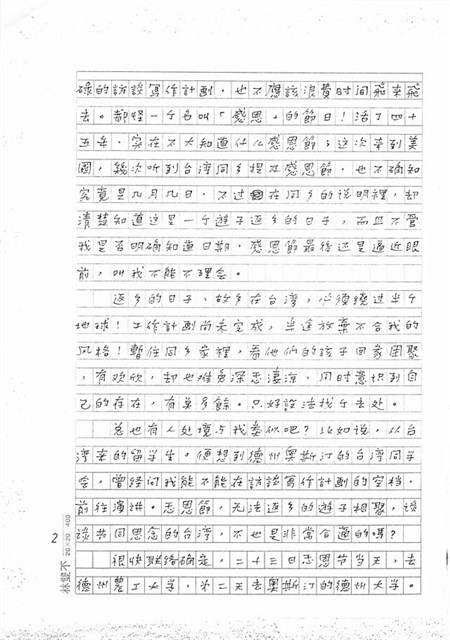 碌的訪談寫作計劃,也不應該浪費时间飛來飛
去。都怪一个名叫「感恩」的節日!活了四十
五年,实在不大知道什么感恩節,这次來到美
國,幾次听到台湾同乡提及感恩節,也不确知
究竟是几月几日。不过在同乡的说明裡,却
清楚知道这是一个遊子返乡的日子,而且不管
我是否明确知道日期,感恩節最後还是逼近眼
前,叫我不能不理会。
返乡的日子,故乡在台湾,必須绕过半个
地球!工作計劃尚未完成,半途放棄不合我的
风格!暫住同乡家裡,看他们的孩子回家团聚
,有欢欣,却也难免深感凄涼,同时意识到自
己的存在,有莫多餘。只好設法找个去处。
总也有人处境与我类似吧?比如说,从台
湾來的留学生。便想到德州奥斯汀的台湾同学
会,曾经问我能不能在訪談寫作計劃的空档,
前往演讲。感恩節,无法返乡的遊子相聚,谈
谈共同思念的台湾,不也是非常合適的嗎?
很快联络确定,二十三日感恩节当天,去
德州農工大学,次二天去奥斯汀的德州大学。
2
林双不 20×20 400